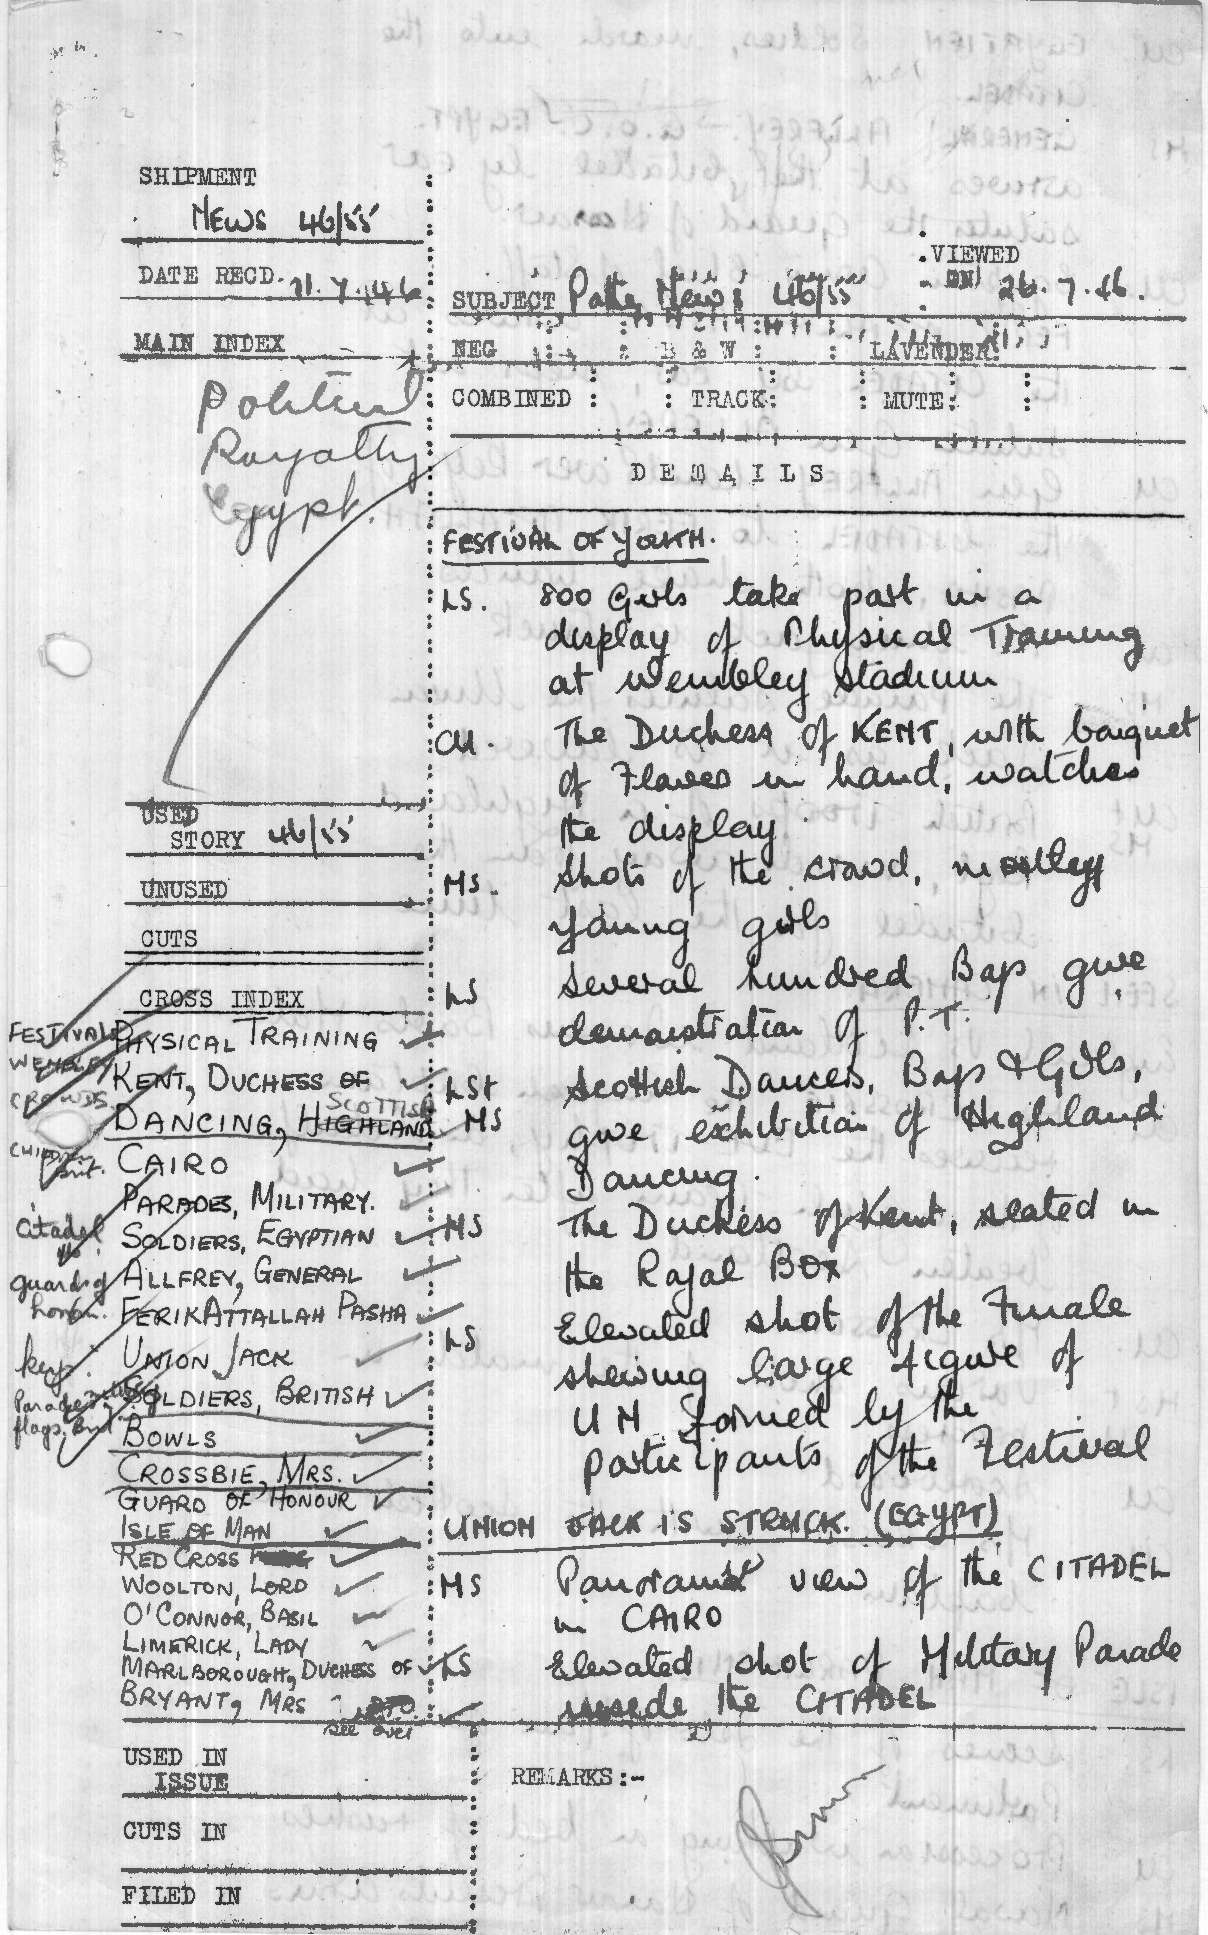 SHIPMENT
NEWS 46/55
DATE RECD. 11.7.46
MAIN INDEX
Political
Royalty
Egypt.
USED
STORY 46/55
UNUSED
CUTS
CROSS INDEX
FESTIVALS
WEMBLEY
CROWDS
CHILDREN
Brit.
Citadel
guard of
honour.
keys.
Parades
flags. Brit
PHYSICAL TRAINING
KENT, DUCHESS OF
SCOTTISH
DANCING, HIGHLAND
CAIRO
PARADES, MILITARY.
SOLDIERS, EGYPTIAN
ALLFREY, GENERAL
FERIK ATTALLAH PASHA
UNION JACK
SOLDIERS, BRITISH
BOWLS
CROSSBIE, MRS.
GUARD OF HONOUR
ISLE OF MAN
RED CROSS
WOOLTON, LORD
O'CONNOR, BASIL
LIMERICK, LADY
MARLBOROUGH, DUCHESS OF
BRYANT, MRS
see over
USED IN
ISSUE
CUTS IN
FILED IN
SUBJECT Pathe News 46/55
VIEWED
ON 26.7.46.
NEG : : B & W : : LAVENDER:
COMBINED : : TRACK: : MUTE: :
DETAILS
FESTIVAL OF YOUTH.
LS. 800 Girls take part in a
display of Physical Training
at Wembley Stadium
CU. The Duchess of KENT, with boquet
of Flowers in hand, watches
the display
MS. Shots of the crowd, mostley
young girls
LS Several hundred Boys give
demonstration of P.T.
LS+ Scottish Dancers, Boys & Girls,
MS give exhibition of Highland
Dancing.
MS The Duchess of Kent, seated in
the Royal BOX
LS Elevated shot of the Finale
shewing large figure of
U N formed by the
participants of the Festival
UNION JACK IS STRUCK. (EGYPT)
MS Panoramic view of the CITADEL
in CAIRO
LS Elevated shot of Military Parade
inside the CITADEL
REMARKS:-